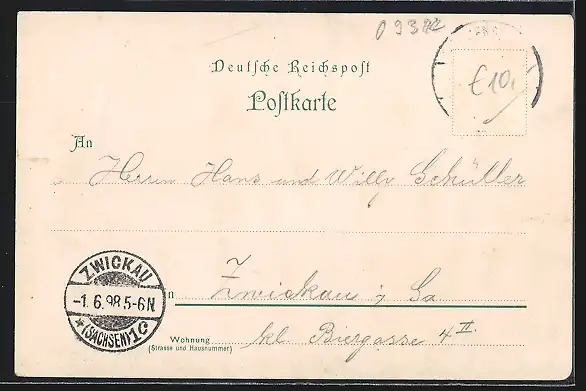 09382
Deutsche Reichspost
Postkarte
€10,
An
Herrn Hans und Willy Schüller
ZWICKAU
-1.6.98.5-6N
*(SACHSEN)1c
n Zwickau i/ Sa
Wohnung
(Strasse und Hausnummer)
kl. Biergasse 4 II.